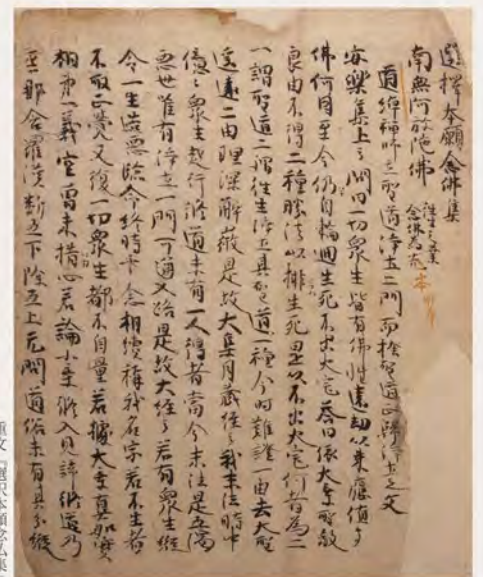 選擇本願念佛集
南無阿弥陀佛 往生之業 念佛為本
道綽禪師立聖道淨土二門而捨聖道正歸淨土之文
安樂集上云問曰一切衆生皆有佛性遠劫以來應值多
佛何因至今仍自輪廻生死不出火宅荅曰依大乘聖教
良由不得二種勝法以排生死是以不出火宅何者為二
一謂聖道二謂往生淨土其聖道一種今時難證一由去大聖
遥遠二由理深解微是故大集月藏經云我末法時中
億々衆生起行修道未有一人得者當今末法是五濁
惡世唯有淨土一門可通入路是故大經云若有衆生縱
令一生造惡臨命終時十念相續稱我名字若不生者
不取正覺又復一切衆生都不自量若據大乘真如實
相第一義空曾未措心若論小乘修入見諦修道乃
至那含羅漢斷五下除五上无問道俗未有其分縱
重文『選択本願念仏集